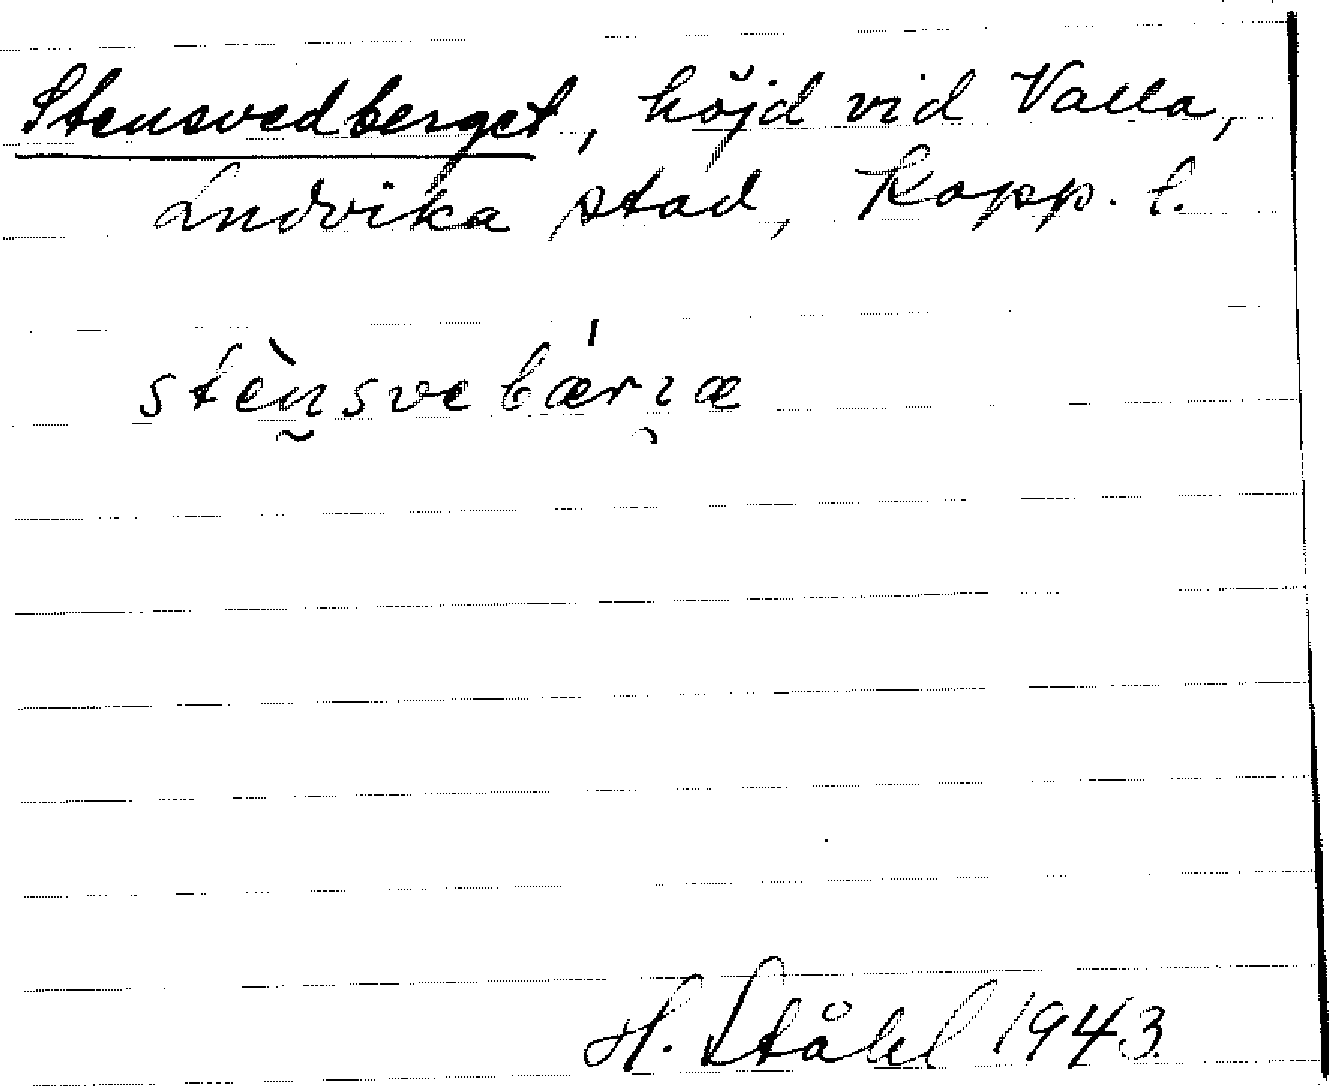 Stensvedberget, höjd vid Valla,
Ludvika stad, Kopp. l.
stènsvebárɿæ
H. Ståhl 1943